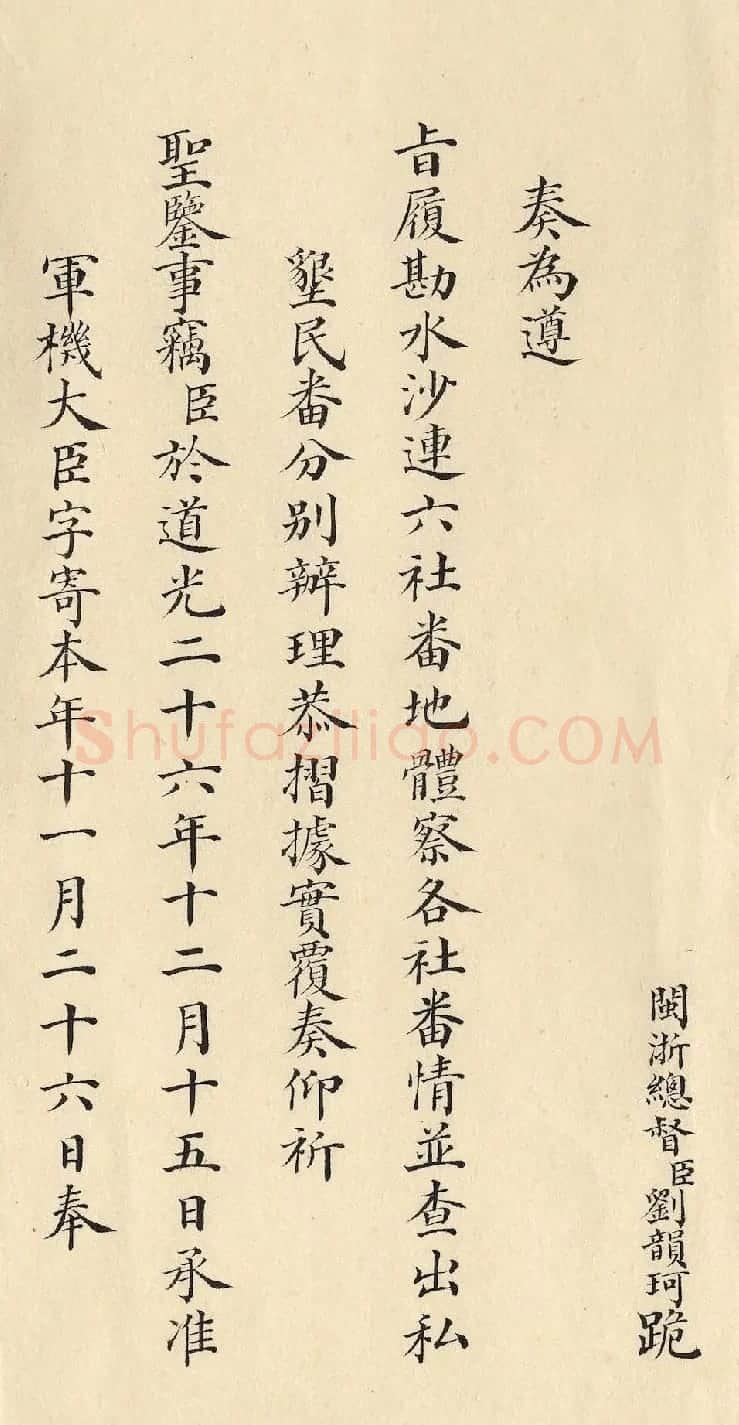 閩浙總督臣劉韻珂跪
奏為遵
旨履勘水沙連六社番地體察各社番情並查出私
墾民番分別辦理恭摺據實覆奏仰祈
聖鑒事竊臣於道光二十六年十二月十五日承准
軍機大臣字寄本年十一月二十六日奉
Shufaziliao.COM